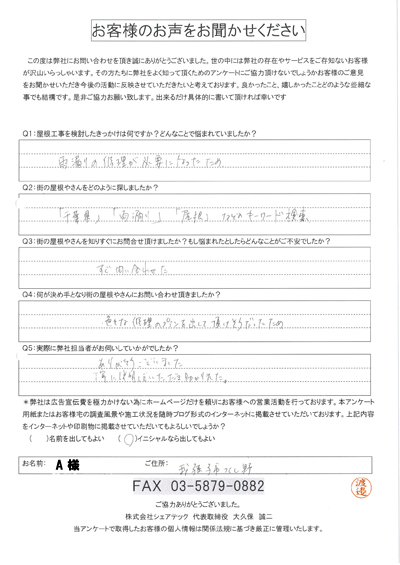 お客様のお声をお聞かせください
この度は弊社にお問い合わせを頂き誠にありがとうございました。世の中には弊社の存在やサービスをご存知ないお客様
が沢山いらっしゃいます。その方たちに弊社をよく知って頂くためのアンケートにご協力頂けないでしょうかお客様のご意見
をお聞かせいただき今後の活動に反映させていただきたいと考えております。良かったこと、嬉しかったことどのような些細な
事でも結構です。是非ご協力お願い致します。出来るだけ具体的に書いて頂ければ幸いです
Q1:屋根工事を検討したきっかけは何ですか?どんなことで悩まれていましたか?
雨漏りの修理が必要になったため
Q2:街の屋根やさんをどのように探しましたか?
「千葉県」「雨漏り」「屋根」などのキーワード検索
Q3:街の屋根やさんを知りすぐにお問合せ頂けましたか?もし悩まれたとしたらどんなことがご不安でしたか?
すぐ問い合わせた
Q4:何が決め手となり街の屋根やさんにお問い合わせ頂きましたか?
色々な修理のプランを出して頂けそうだったため
Q5:実際に弊社担当者がお伺いしていかがでしたか?
ありがとうございました
＊弊社は広告宣伝費を極力かけない為にホームページだけを頼りにお客様への営業活動を行っております。本アンケート
用紙またはお客様宅の調査風景や施工状況を随時ブログ形式のインターネットに掲載させていただいております。上記内容
をインターネットや印刷物に掲載させていただいてもよろしいでしょうか?
( )名前を出してもよい (○)イニシャルなら出してもよい
お名前: A 様 ご住所: 我孫子市つくし野
FAX 03-5879-0882
渡邉
ご協力ありがとうございました。
株式会社シェアテック 代表取締役 大久保 誠二
当アンケートで取得したお客様の個人情報は関係法規に基づき厳正に管理いたします。